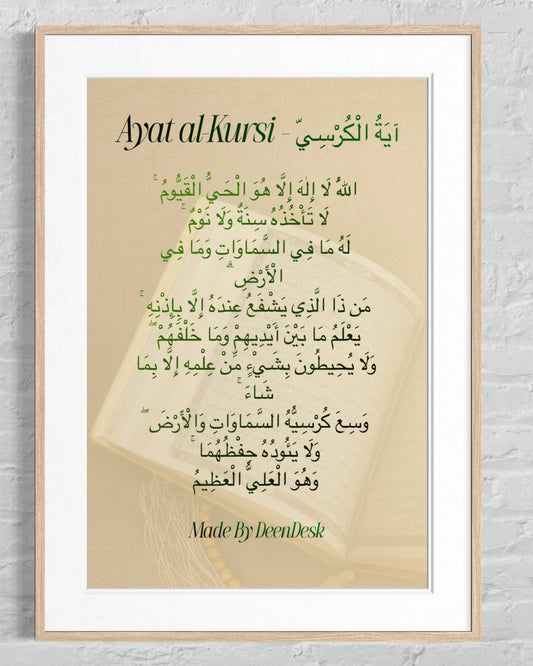 Ayat al-Kursi - آيَةُ الْكُرْسِيّ
اللهُ لَا إِلَٰهَ إِلَّا هُوَ الْحَيُّ الْقَيُّومُ ۚ
لَا تَأْخُذُهُ سِنَةٌ وَلَا نَوْمٌ ۚ
لَهُ مَا فِي السَّمَاوَاتِ وَمَا فِي
الْأَرْضِ ۗ
مَن ذَا الَّذِي يَشْفَعُ عِندَهُ إِلَّا بِإِذْنِهِ ۚ
يَعْلَمُ مَا بَيْنَ أَيْدِيهِمْ وَمَا خَلْفَهُمْ ۖ
وَلَا يُحِيطُونَ بِشَيْءٍ مِّنْ عِلْمِهِ إِلَّا بِمَا
شَاءَ ۚ
وَسِعَ كُرْسِيُّهُ السَّمَاوَاتِ وَالْأَرْضَ ۖ
وَلَا يَئُودُهُ حِفْظُهُمَا ۚ
وَهُوَ الْعَلِيُّ الْعَظِيمُ
Made By DeenDesk